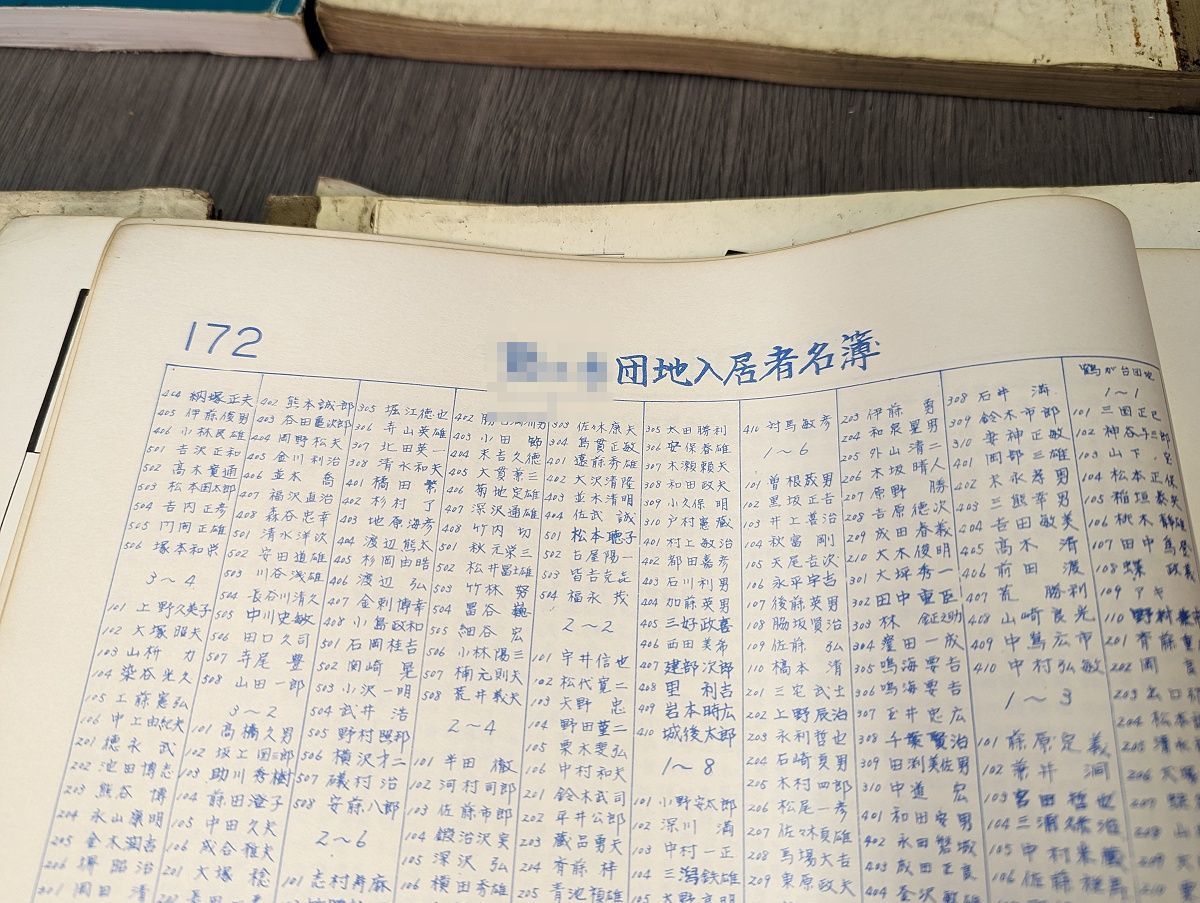 172
団地入居者名簿
404 納塚正夫
405 伊藤俊男
406 小林民雄
501 吉沢正和
502 高木寛通
503 松本国太郎
504 吉内正彦
505 門間正雄
506 塚本和栄
3〜4
101 上野久美子
102 大塚昭夫
103 山析 力
104 染谷光久
105 工藤憲弘
106 中上由紀夫
201 徳永 武
202 池田博志
203 熊谷 博
204 永山廣明
205 金木潤吉
206 堺昭治
301 岡田 清
402 熊本誠一郎
403 谷田亀次郎
404 岡野松夫
405 金川利治
406 並木 喬
407 福沢直治
408 森谷忠幸
501 清水洋次
502 安田道雄
503 川谷浅雄
504 長谷川清久
505 中川史敏
506 田口久司
507 寺尾 豊
508 山田一郎
3〜2
101 高橋久男
102 坂上国三郎
103 助川秀樹
104 前田澄子
105 中田久夫
106 成合雅夫
201 大塚 稔
305 堀江徳也
306 寺山英雄
307 北田英一
308 清水和夫
401 橋田 繁
402 杉村 了
403 地原海彦
404 渡辺熊太
405 杉岡由晧
406 渡辺 弘
407 金刺博幸
408 小島政和
501 石岡桂吉
502 関崎 晃
503 小沢一明
504 武井 浩
505 野村照邦
506 横沢才二
507 礒村 治
508 安藤八郎
2〜6
101 志村寿麻
402
403 小田
404 末吉久徳
405 大貫兼三
406 菊地定雄
407 深沢通雄
408 竹内 切
501 秋元栄三
502 松井富士雄
503 竹林 努
504 冨谷 巍
505 細谷 宏
506 小林陽三
507 楠元則夫
508 荒井義夫
2〜4
101 半田 徹
102 河村司郎
103 佐藤市郎
104 鍛治沢実
105 深沢 弘
106 横田秀雄
303 佐々木康夫
304 島貫正敏
401 遠藤秀雄
402 大沢清隆
403 並木清明
404 佐武 誠
501 松本聰子
502 古屋陽一
503 皆吉克品
504 福永 茂
2〜2
101 宇井信也
102 松代寛二
103 大野 忠
104 野田菫二
105 栗木奨弘
106 中村和夫
201 鈴木武司
202 平井公郎
203 蔵品勇夫
204 斉藤 梓
205 青池禎雄
305 太田勝利
306 安保春雄
307 木瀬頼夫
308 和田政夫
309 小久保 明
310 戸村憲蔵
401 村上敏治
402 都田嘉彦
403 石川利男
404 加藤英男
405 三好政喜
406 西田美希
407 建部次郎
408 里 利吉
409 岩本時広
410 城後太郎
1〜8
101 小野安太郎
102 深川 満
103 中村一正
104 三潟鉄雄
105 大野京明
410 対馬敏彦
1〜6
101 曽根哉男
102 黒坂正吉
103 井上善治
104 秋富 剛
105 天尾吉次
106 永平宇吉
107 後藤英男
108 脇坂賢治
109 佐藤 弘
110 橋本 清
201 三宅武士
202 上野辰治
203 永利哲也
204 石崎真男
205 木村四郎
206 松尾一彦
207 佐々木頂雄
208 馬場大吉
209 東原政夫
203 伊藤 勇
204 和泉星男
205 外山清二
206 木坂晴人
207 原野 勝
208 吉原徳次
209 成田春義
210 大木俊明
301 大坪秀一
302 田中重臣
303 林 鉦之助
304 窪田一成
305 鳴海要吉
306 鳴海要吉
307 玉井忠広
308 千葉賢治
309 田渕美佐男
310 中道 宏
401 和田安男
402 永田
403 成田正良
404 金沢
308 石井 満
309 鈴木市郎
310 妻神正敏
401 岡部三雄
402 末永寿男
403 三熊幸男
404 吉田敏美
405 高木 清
406 前田 渡
407 荒 勝利
408 山崎良光
409 中島広市
410 中村弘敏
1〜3
101 藤原定義
102 華井 洞
103 宮田哲也
104 三浦
105 中村
106 佐藤
鶴が台団地
1〜1
101 三国正巳
102 神谷与三郎
103 山下
104 松本正保
105 稲垣
106 桃木
107 田中
108 蝶
109 アキ
110 野村
201 斉藤
202 岡
203
204 松本
205 清水
206 大塚
207
208 山
209